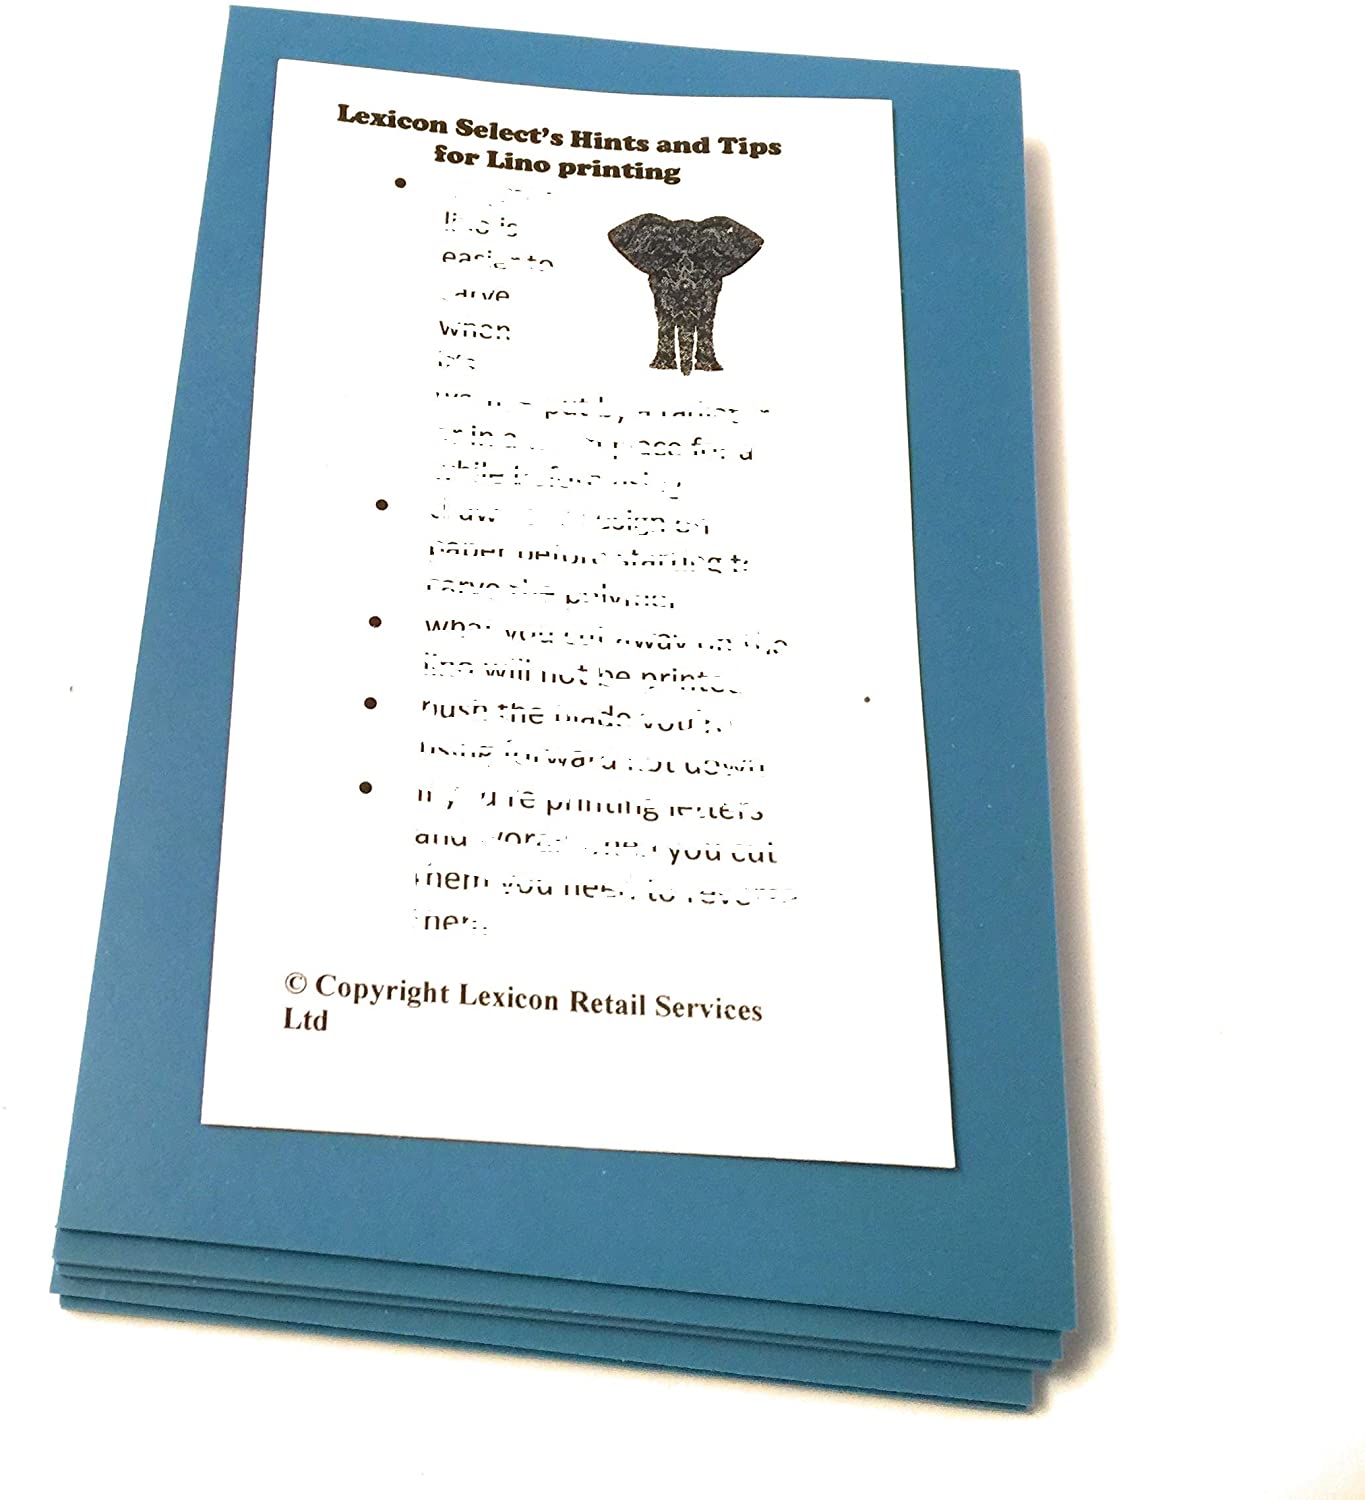 Lexicon Select's Hints and Tips
for Lino printing
lino is
easier to
carve
when
it's
put by a
or in a place for a
while before using
draw design on
paper before starting to
carve the polymer
what you cut away on the
lino will not be printed
push the blade you're
using forward not down
If you're printing letters
and words when you cut
them you need to reverse
them.
© Copyright Lexicon Retail Services
Ltd